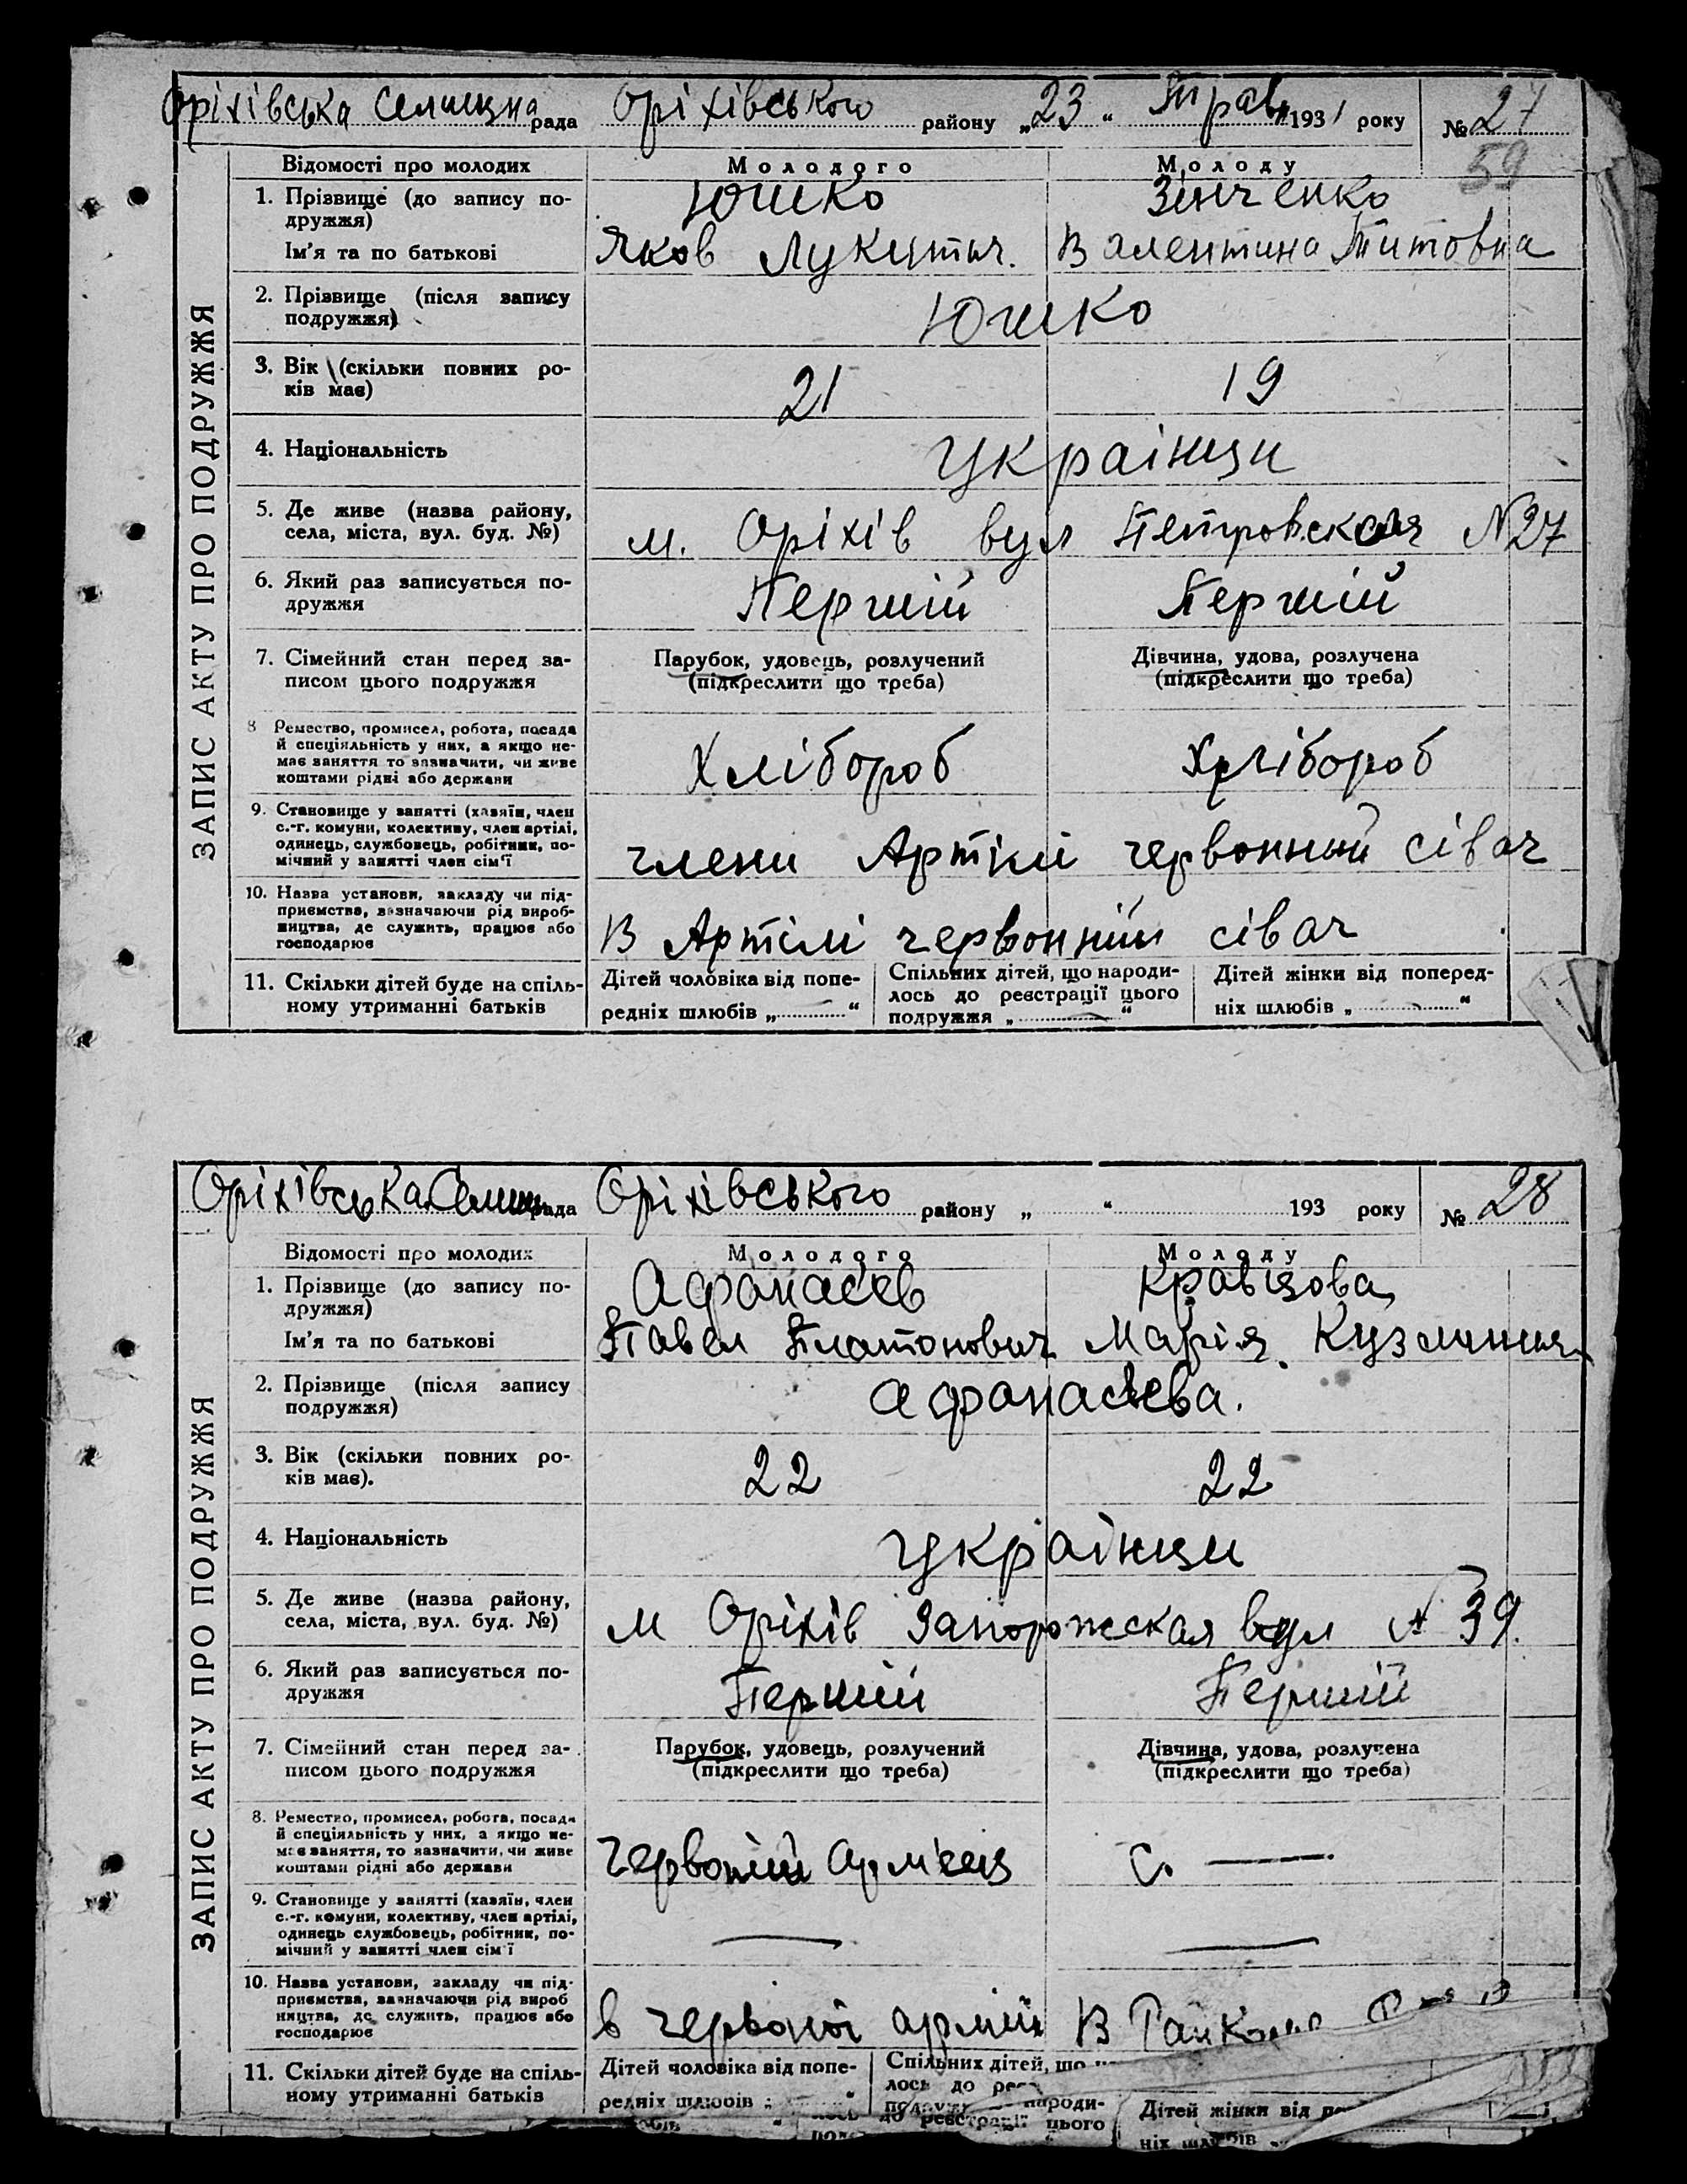 Оріхівська Селищна рада Оріхівського району „23“ Трав 1931 року № 27
59
Відомості про молодих Молодого Молоду
1. Прізвище (до запису по-
дружжя) Юшко Зінченко
Ім'я та по батькові Яков Лукитич. Валентина Титовна
2. Прізвище (після запису
подружжя) Юшко
3. Вік (скільки повних ро-
ків має) 21 19
4. Національність Українци
5. Де живе (назва району,
села, міста, вул. буд. №) м. Оріхів вул Петровская №27
6. Який раз записується по-
дружжя Першій Першій
7. Сімейний стан перед за-
писом цього подружжя
Парубок, удовець, розлучений
(підкреслити що треба)
Дівчина, удова, розлучена
(підкреслити що треба)
8 Ремество, промисел, робота, посада
й спеціяльність у них, а якщо не-
має заняття то зазначити, чи живе
коштами рідні або держави
Хлібороб Хлібороб
9. Становище у занятті (хазяїн, член
с.-г. комуни, колективу, член артілі,
одинець, службовець, робітник, по-
мічний у занятті член сім'ї
члени Артілі червонный сівач
10. Назва установи, закладу чи під-
приємства, зазначаючи рід вироб-
ництва, де служить, працює або
господарює
В Артілі червонній сівач
11. Скільки дітей буде на спіль-
ному утриманні батьків
Дітей чоловіка від попе-
редніх шлюбів „ — “
Спільних дітей, що народи-
лось до реєстрації цього
подружжя „ — “
Дітей жінки від поперед-
ніх шлюбів „ — “
ЗАПИС АКТУ ПРО ПОДРУЖЖЯ
Оріхівська Селищ рада Оріхівського району „ “ 193 року № 28
Відомості про молодих Молодого Молоду
1. Прізвище (до запису по-
дружжя) Афанасєв Кравцова
Ім'я та по батькові Павел Платонович Марія Кузминична
2. Прізвище (після запису
подружжя) Афанасєва.
3. Вік (скільки повних ро-
ків має). 22 22
4. Національність Українци
5. Де живе (назва району,
села, міста, вул. буд. №) м Оріхів Запорожская вул № 39.
6. Який раз записується по-
дружжя Першій Першій
7. Сімейний стан перед за-
писом цього подружжя
Парубок, удовець, розлучений
(підкреслити що треба)
Дівчина, удова, розлучена
(підкреслити що треба)
8. Ремество, промисел, робота, посада
й спеціяльність у них, а якщо не-
має заняття, то зазначити, чи живе
коштами рідні або держави
Червоній армієць С. —
9. Становище у занятті (хазяїн, член
с.-г. комуни, колективу, член артілі,
одинець службовець, робітник, по-
мічний у занятті член сім'ї
— —
10. Назва установи, закладу чи під-
приємства, зазначаючи рід вироб
ництва, де служить, працює або
господарює
в червоної армій В
11. Скільки дітей буде на спіль-
ному утриманні батьків
Дітей чоловіка від попе-
редніх шлюбів
Спільних дітей, що
лось до
народи-
до реєстрації цього
Дітей жінки від
ніх
ЗАПИС АКТУ ПРО ПОДРУЖЖЯ